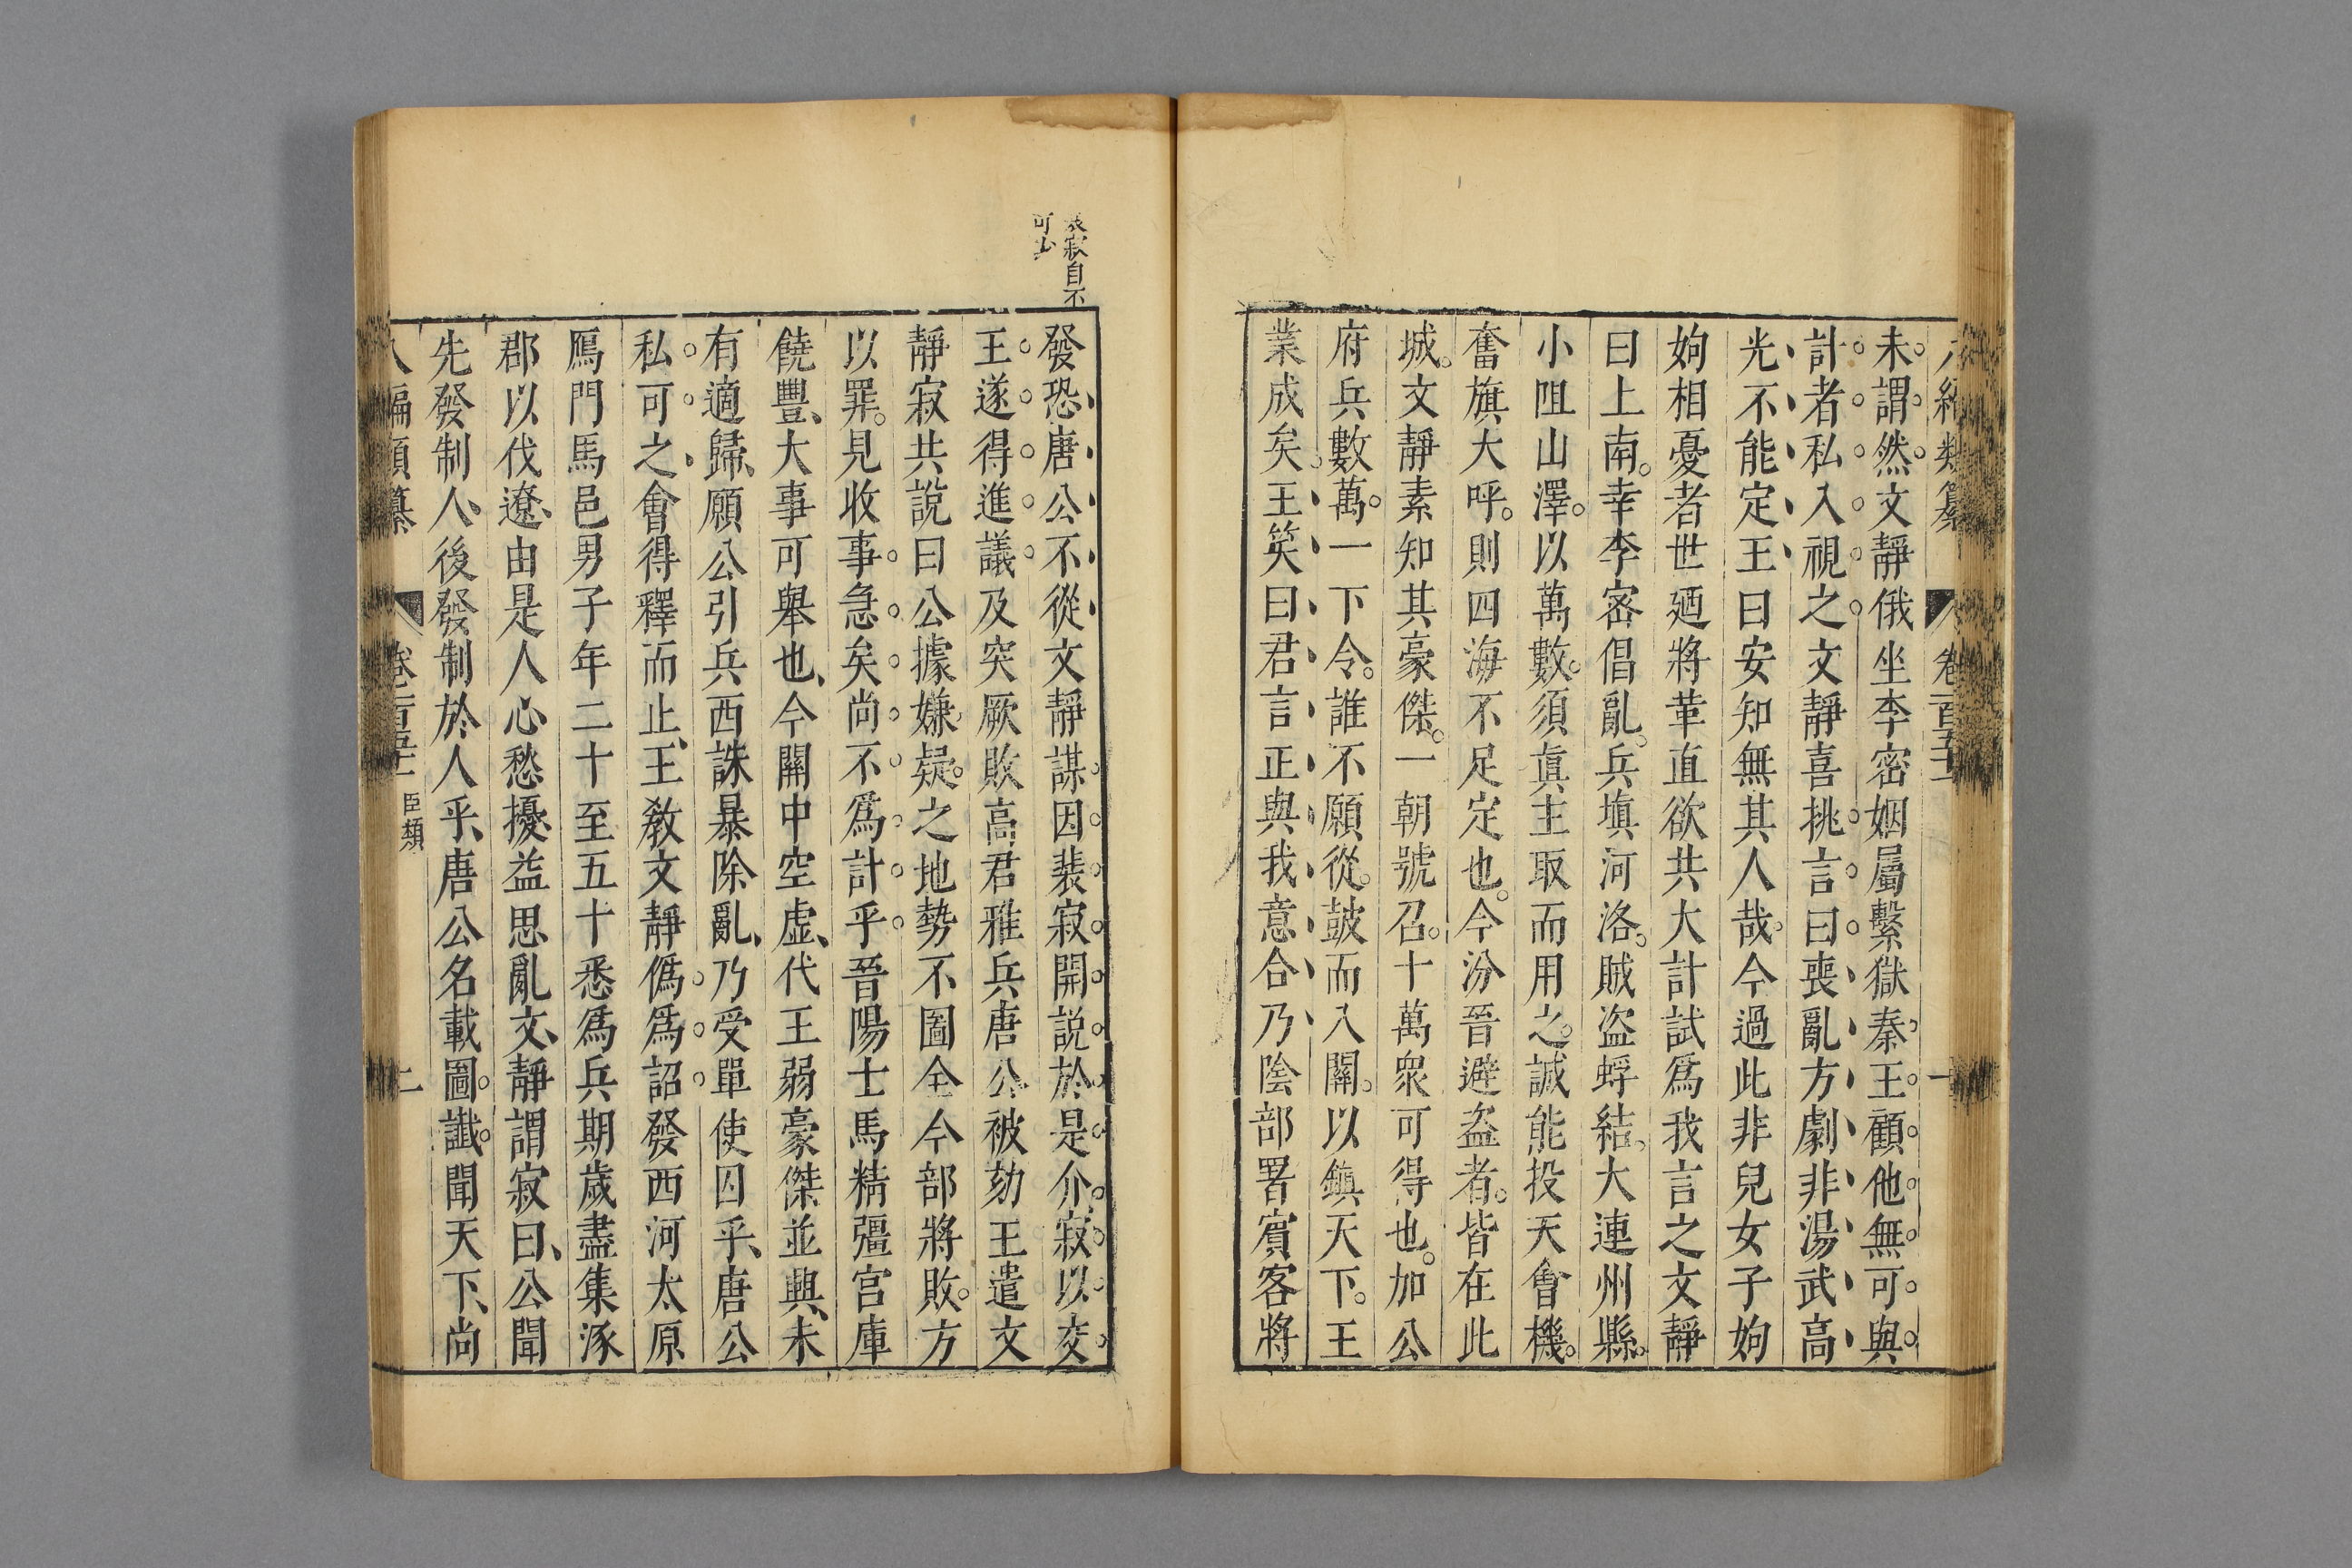 未謂然文靜俄坐李密姻屬繫獄秦王顧他無可與
計者私入視之文靜喜挑言曰喪亂方劇非湯武高
光不能定王曰安知無其人哉今過此非兒女子姁
姁相憂者世廼將革直欲共大計試爲我言之文靜
曰上南幸李密倡亂兵塡河洛賊盜蜉結大連州縣
小阻山澤以萬數須眞主取而用之誠能投天會機
奮旗大呼則四海不足定也今汾晉避盜者皆在此
城文靜素知其豪傑一朝號召十萬衆可得也加公
府兵數萬一下令誰不願從鼓而入關以鎮天下王
業成矣王笑曰君言正與我意合乃陰部署賓客將
裴寂自不
可少
發恐唐公不從文靜謀因裴寂開說於是介寂以交
王遂得進議及突厥敗高君雅兵唐公被劾王遣文
靜寂共說曰公據嫌疑之地勢不圖全今部將敗方
以罪見收事急矣尚不爲計乎晉陽士馬精彊宮庫
饒豐大事可舉也今關中空虛代王弱豪傑並興未
有適歸願公引兵西誅暴除亂乃受單使囚乎唐公
私可之會得釋而止王敎文靜僞爲詔發西河太原
鴈門馬邑男子年二十至五十悉爲兵期歲盡集涿
郡以伐遼由是人心愁擾益思亂文靜謂寂曰公聞
先發制人後發制於人乎唐公名載圖讖聞天下尚
八編類纂 卷二百五十一 臣類 二